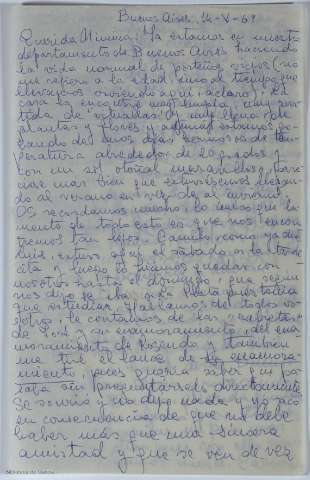 Buenos Aires, 14-V-69
Querida Mimina: Ya estamos en nuestro
departamento de Buenos Aires haciendo
la vida normal de porteños viejos (no
me refiero a la edad, sino al tiempo que
llevamos viviendo aquí, aclaro). La
casa la encontré muy limpia, muy
de y muy llena de
plantas y flores y además estamos
gozando de unos días hermosos de tem-
peratura alrededor de 20 grados y
con un sol otoñal maravilloso,
más bien que estuviésemos
al verano en vez de al invierno.
Os recordamos mucho, lo único que la-
mento de todo esto es que nos encon-
tremos tan lejos. Camilo, como ya di-
je, estuvo aquí el sábado a la tarde-
cita y luego lo hicimos quedar con
nosotros hasta el domingo, que según
nos dijo se iba, pues tenía que
que estudiar. Hablamos de todos vo-
sotros, le contamos de las
de y su enamoramiento, del ena-
moramiento de Rosendo y también
me tiré el lance de su enamora-
miento, pues quería saber qué pa-
saba sin preguntárselo directamente.
Se sonrió y no dijo nada y yo saco
en consecuencia de que no debe
haber más que una sincera
amistad y que se ven de vez